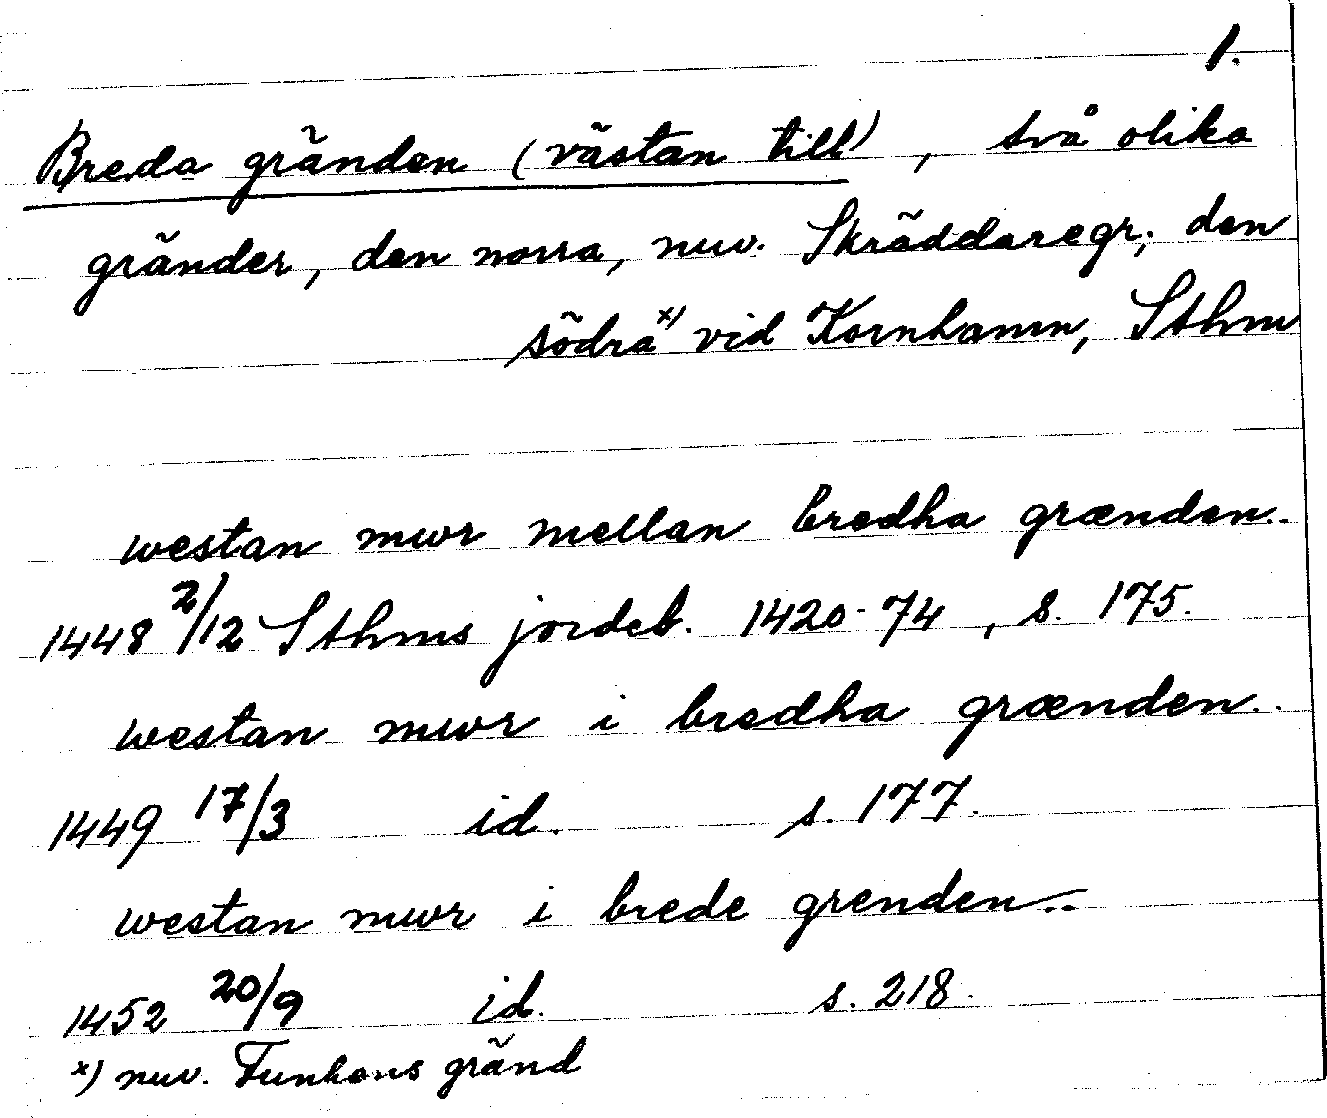 1.
Breda gränden (västan till), två olika
gränder, den norra, nuv. Skräddaregr; den
södra x) vid Kornhamn, Sthm
westan mwr mellan bredha grænden..
1448 2/12 Sthms jordeb. 1420-74, s. 175.
westan mwr i bredha grænden..
1449 17/3 id. s. 177.
westan mwr i brede grenden..
1452 20/9 id. s. 218.
x) nuv. Funkens gränd